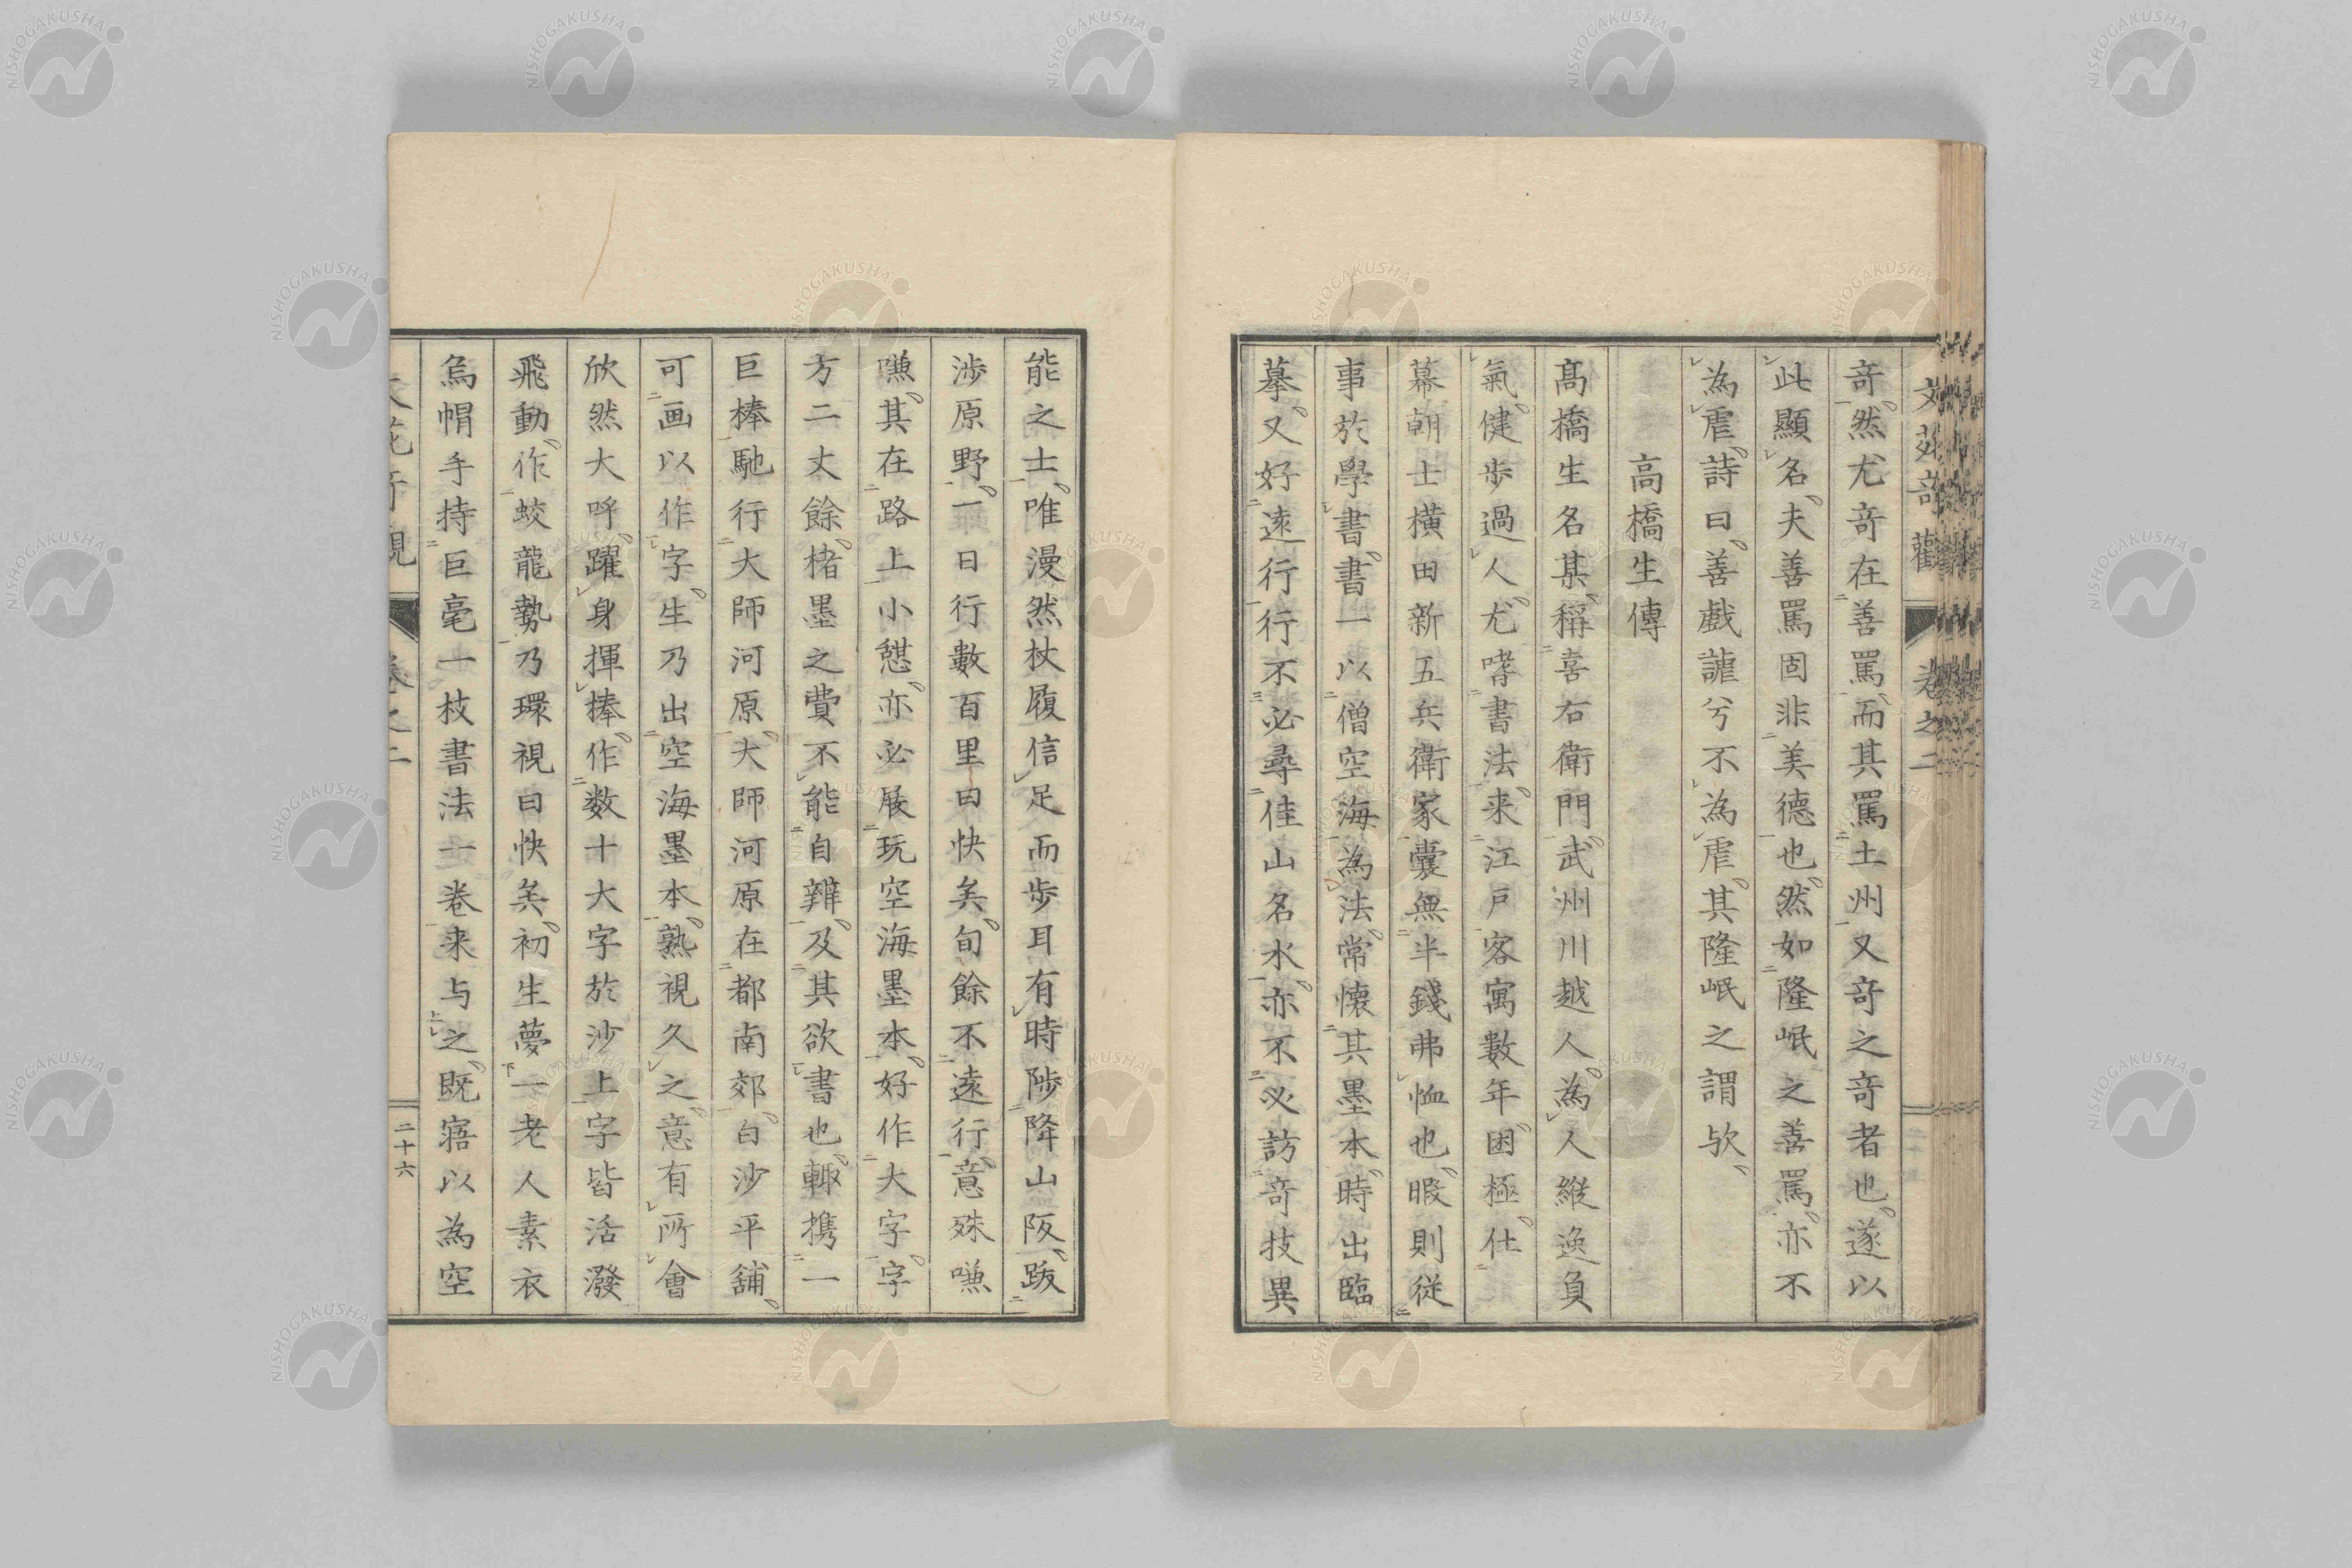 奇然尤奇在善罵而其罵土州又奇之奇者也遂以
此顯名夫善罵固非美德也然如隆岷之善罵亦不
為虐詩曰善戲謔兮不為虐其隆岷之謂欤
高橋生傳
髙橋生名某稱喜右衛門武州川越人為人縱逸負
氣健歩過人尤嗜書法来江戸客寓數年困極仕
幕朝士横田新五兵衛家囊無半錢弗恤也暇則従
事於學書書一以僧空海為法常懐其墨本時出臨
摹又好遠行行不必尋佳山名水亦不必訪奇技異
能之士唯漫然杖履信足而歩耳有時陟降山阪跋
渉原野一日行數百里曰快矣旬餘不遠行意殊嗛
嗛其在路上小憇亦必展玩空海墨本好作大字字
方二丈餘楮墨之費不能自辨及其欲書也輙携一
巨棒馳行大師河原大師河原在都南郊白沙平舖
可画以作字生乃出空海墨本熟視久之意有所會
欣然大呼躍身揮棒作数十大字於沙上字皆活潑
飛動作蛟龍勢乃環視曰快矣初生夢一老人素衣
烏帽手持巨毫一枝書法一巻来与之既寤以為空
二十六
NISHOGAKUSHA